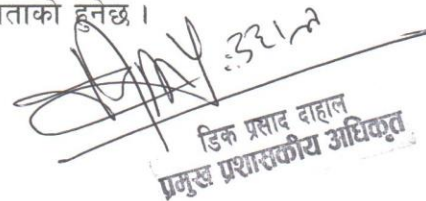 ताको हुनेछ ।
डिक प्रसाद दाहाल
प्रमुख प्रशासकीय अधिकृत